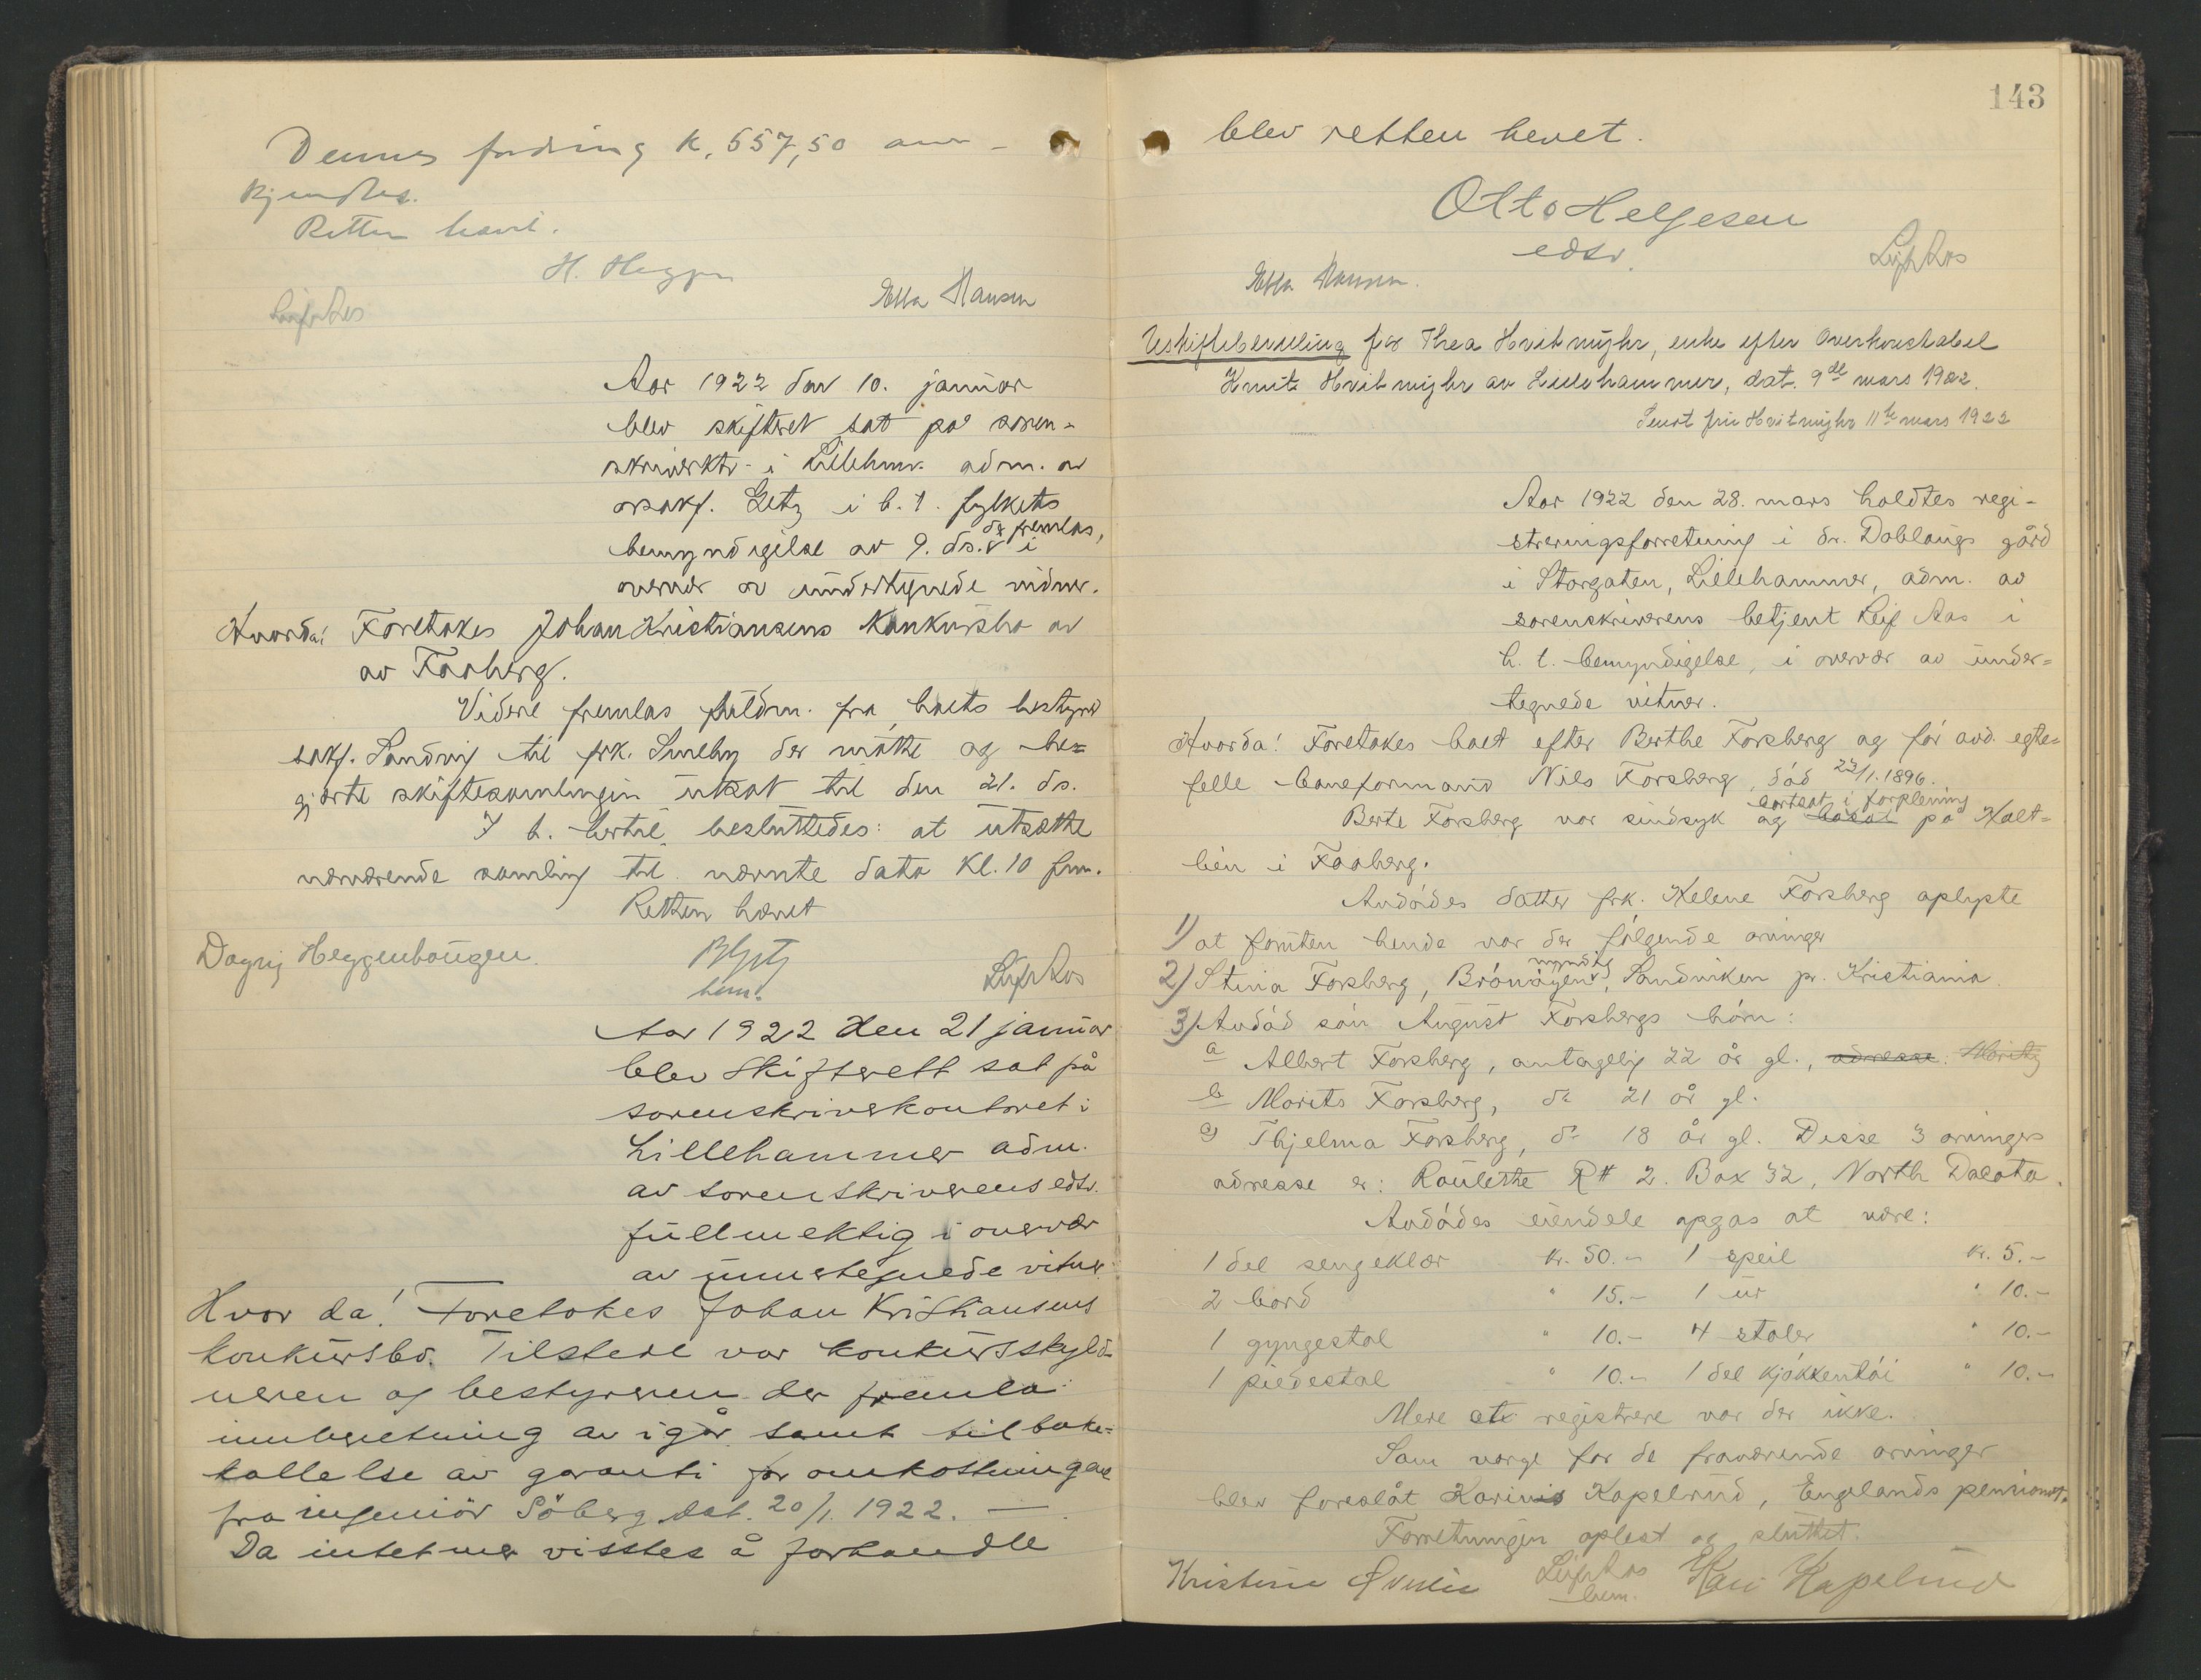 Dennes fordring k. 557,50 aner-
kjendtes.
Retten hævet.
H. Heggen
Leif Aas
Ella Hansen
Aar 1922 den 10. januar
blev skifteret sat på soren-
skriverktr. i Lilleham. adm. av
o.sakf. Getz i h.t. fylkets
bemyndigelse av 9. ds. der fremlas, i
overvær av undertegnede vidner.
Hvorda: Foretokes Johan Kristiansens konkursbo av
av Faaberg.
Videre fremlas fuldm. fra boets bestyrer
sakf. Sandvig til frk. Smeby der møtte og be=
gjærte skiftesamlingen utsat til den 21. ds.
I h. hertil besluttedes: at utsætte
nærværende samling til nævnte dato kl. 10 fm.
Retten hævet
Dagny Heggenhougen.
BGetz
bem.
Leif Aas
Aar 1922 den 21 januar
blev Skifterett sat på
sorenskriverkontoret i
Lillehammer adm.
av sorenskriverens edsv.
fullmektig i overvær
av unnertegnede vitner.
Hvor da! Foretokes Johan Kristiansens
konkursbo. Tilstede var konkursskyld-
neren og bestyreren der fremla
innberetning av igår samt tilbake-
kallelse av garanti for omkostningene
fra ingeniör Söberg dat. 20/1. 1922. —
Da intet mer visstes å forhandle
143
blev retten hevet.
Otto Helgesen
edsv.
Leif Aas
Ella Hansen.
Uskiftebevilling for Thea Hvitmyhr, enke efter Overkonstabel
Knut Hvitmyhr av Lillehammer, dat. 9de mars 1922.
Sendt fru Hvitmyhr 11te mars 1922
Aar 1922 den 28. mars holdtes regi-
streringsforretning i dr. Doblougs gård
i Storgaten, Lillehammer, adm. av
sorenskriverens betjent Leif Aas i
h. t. bemyndigelse, i overvær av under=
tegnede vitner.
Hvorda! Foretokes boet efter Berthe Forsberg og før avd. egte=
felle baneformand Nils Forsberg, död 23/1. 1896.
Berte Forsberg var sindsyk og bosat bortsat i forpleining på Kalt=
lien i Faaberg.
Avdödes datter frk. Helene Forsberg oplyste
1) at foruten hende var der fölgende arvinger
2) Stina Forsberg, myndig, Sandviken pr. Kristiania.
3) Avdöd sön August Forsbergs börn:
a Albert Forsberg, antagelig 22 år gl., adresse: Moritz
b Morits Forsberg, do 21 år gl.
c) Thjelma Forsberg, do 18 år gl. Disse 3 arvingers
adresse er: Roulette R# 2. Box 32, North Dacota.
Avdödes eiendele opgas at være:
1 del sengeklær kr. 50.- 1 speil kr. 5.-
2 bord " 15.- 1 ur " 10.-
1 gyngestol " 10.- 4 stoler " 10.-
1 piedestal " 10.- 1 del kjökkentöi " 10.-
Mere at registrere var der ikke.
Som verge for de fraværende arvinger
blev foreslåt Karinis Kapelrud, Englands pensionat.
Forretningen oplest og sluttet.
Kristine Leif Aas Kari Kapelrud
bem.